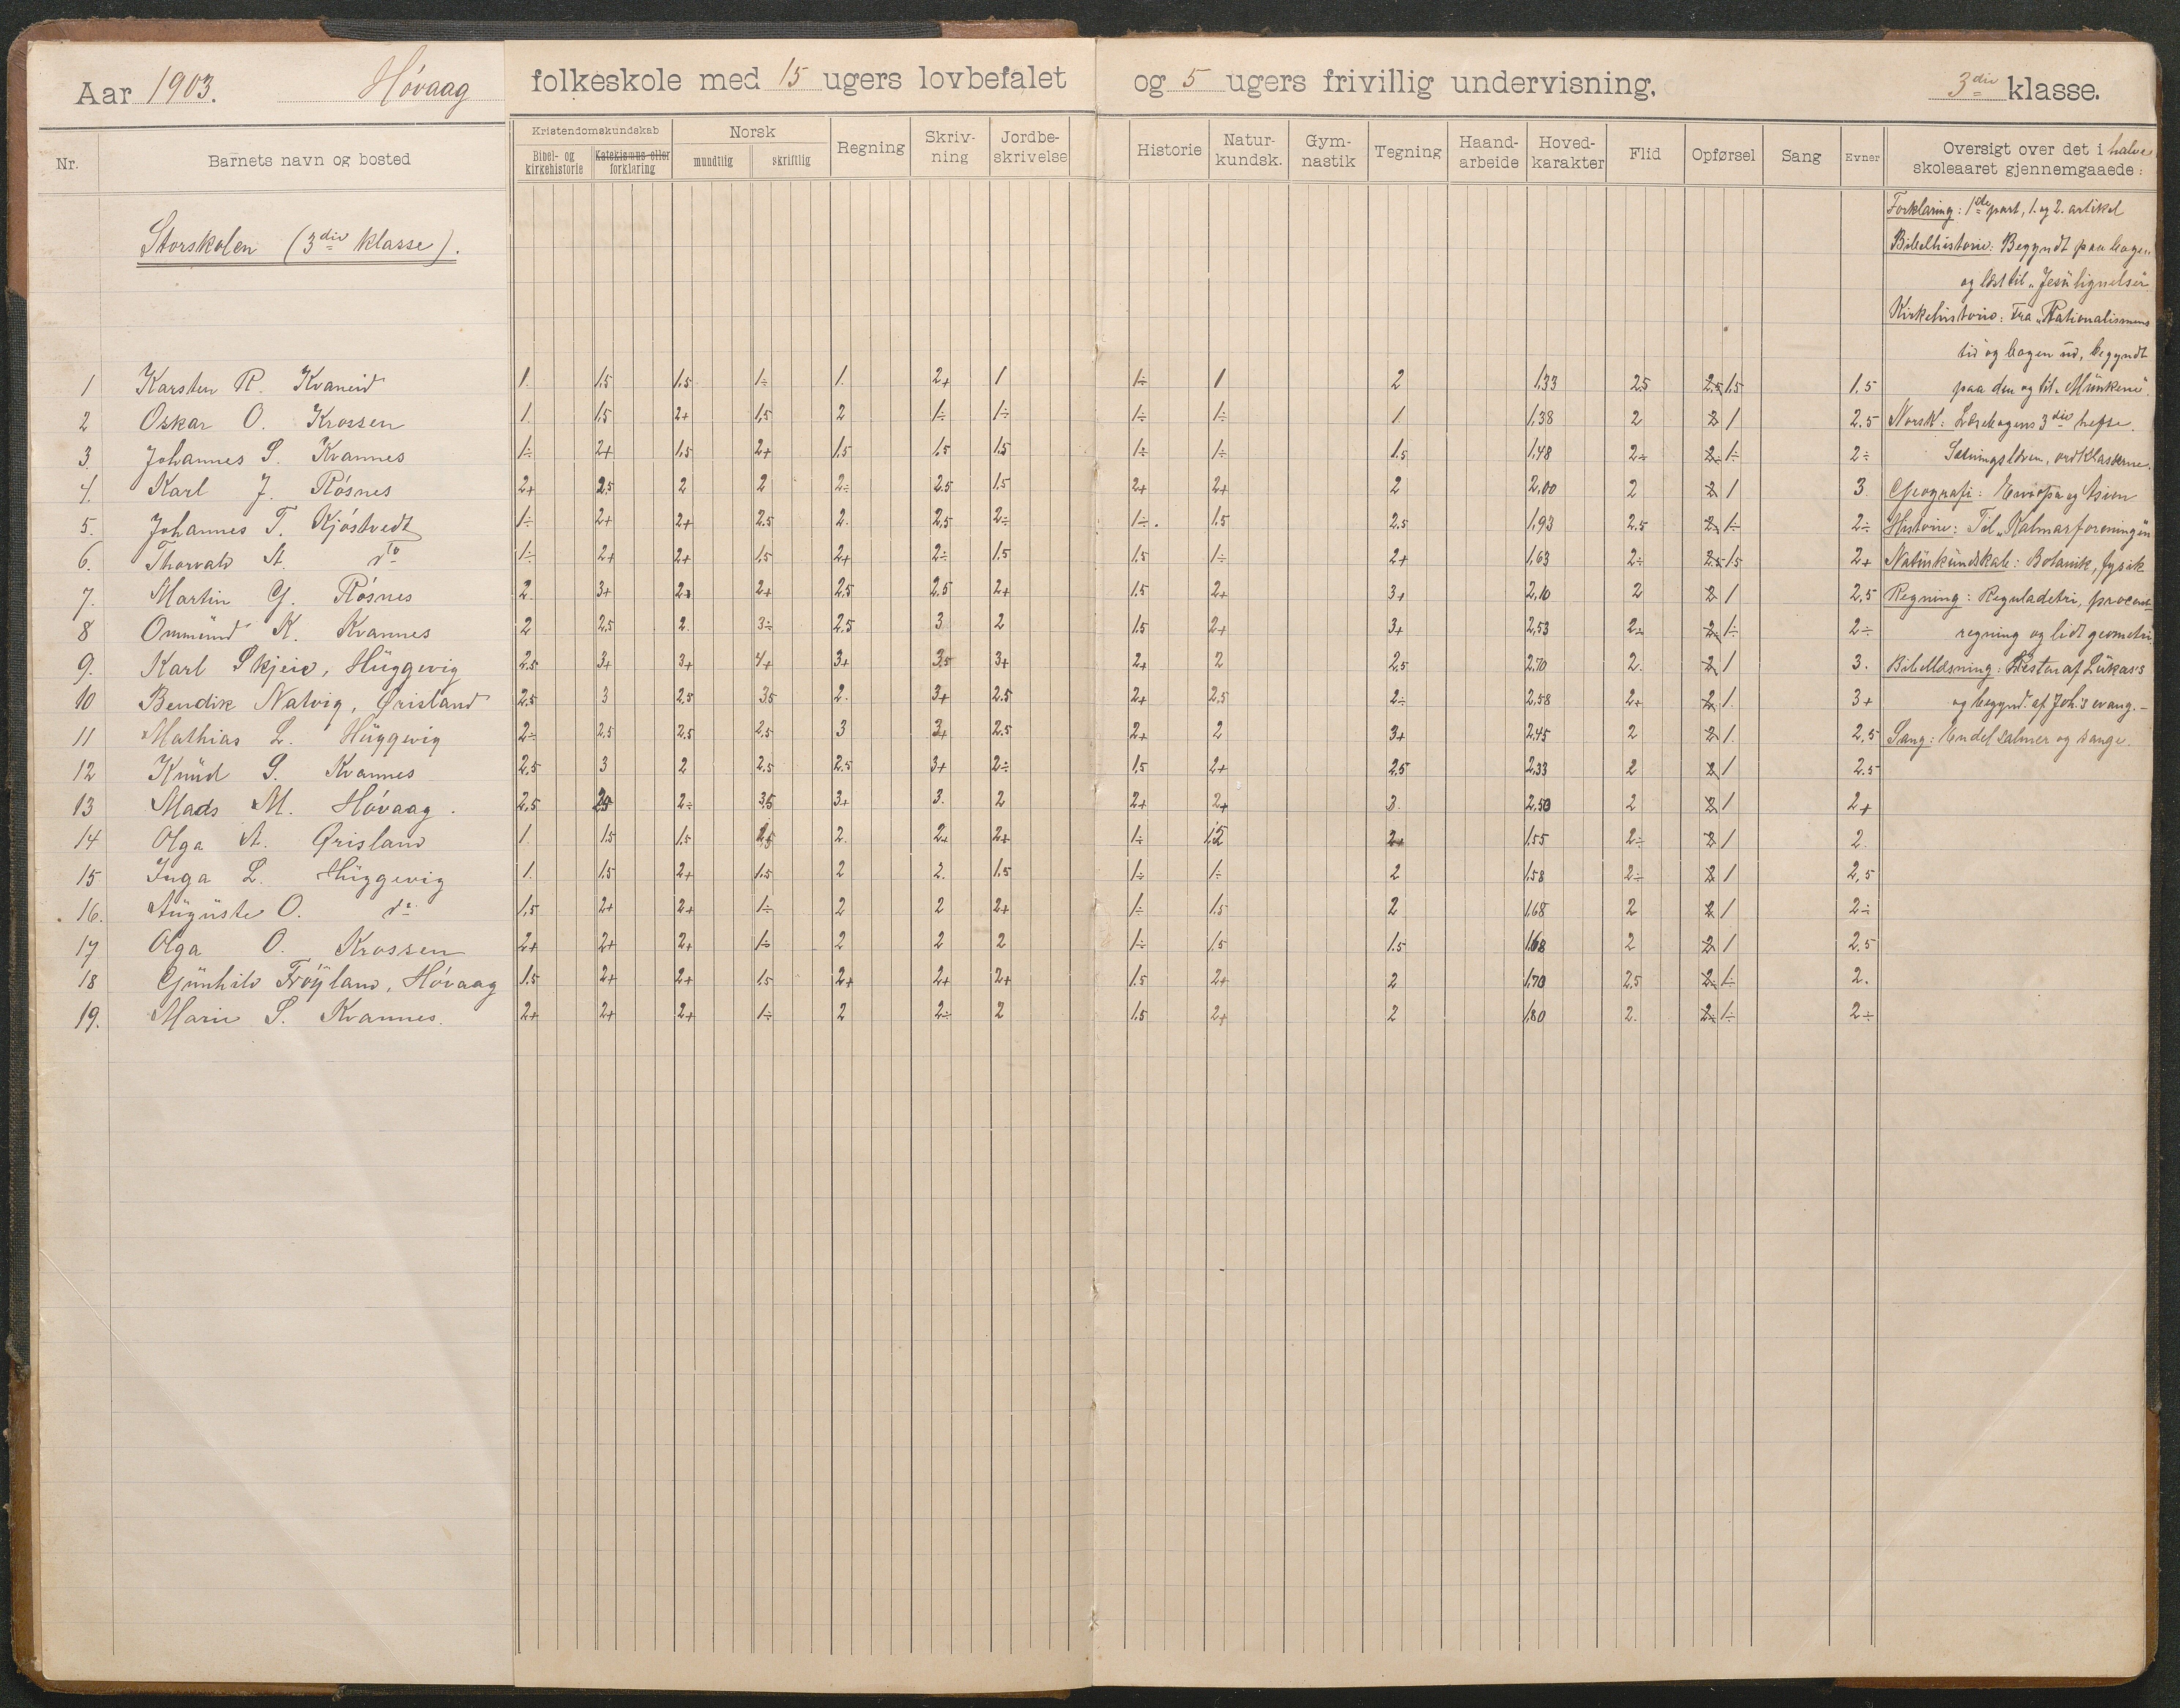 Aar 1903. Høvaag folkeskole med 15 ugers lovbefalet og 5 ugers frivillig undervisning. 3die klasse.
Nr. Barnets navn og bosted Kristendomskundskab Bibel- og kirkehistorie Katekismus eller forklaring Norsk mundtlig skriftlig Regning Skriv-ning Jordbe-skrivelse Historie Natur-kundsk. Gym-nastik Tegning Haand-arbeide Hoved-karakter Flid Opførsel Sang Evner Oversigt over det i halve skoleaaret gjennemgaaede:
Storskolen (3die klasse).
1 Karsten R. Kvaneid 1. 1,5 1,5 1÷ 1. 2+ 1 1÷ 1 2 1,33 2,5 2,5 1,5 1.5
2 Oskar O. Krossen 1. 1,5 2+ 1,5 2 1÷ 1÷ 1÷ 1÷ 1 1,38 2 2 1 2.5
3. Johannes S. Kvannes 1÷ 2+ 1,5 2+ 1,5 1,5 1,5 1÷ 1÷ 1,5 1,48 2÷ 2÷ 1÷ 2÷
4. Karl J. Røsnes 2+ 2,5 2 2 2÷ 2.5 1.5 2+ 2+ 2 2,00 2 2 1 3.
5. Johannes T. Kjøstvedt 1÷ 2+ 2+ 2.5 2. 2,5 2÷ 1÷. 1,5 2.5 1,93 2.5 2 1÷ 2÷
6. Thorvald A. do 1÷ 2+ 2+ 1,5 2+ 2÷ 1.5 1,5 1÷ 2+ 1,63 2÷ 2.5 1.5 2+
7. Martin G. Røsnes 2. 3+ 2+ 2+ 2,5 2.5 2+ 1,5 2+ 3+ 2,10 2 2 1 2,5
8 Ommund K. Kvannes 2 2,5 2. 3÷ 2.5 3 2 1.5 2+ 3+ 2,53 2÷ 2÷ 1÷ 2÷
9. Karl Skjeie, Huggevig 2.5 3+ 3+ 4+ 3+ 3,5 3+ 2+ 2 2.5 2,70 2. 2 1 3.
10 Bendik Natvig, Ørisland 2,5 3 2,5 3,5 2. 3+ 2.5 2+ 2,5 2÷ 2,58 2+ 2 1. 3+
11 Mathias L. Huggevig 2÷ 2,5 2.5 2,5 3 3+ 2.5 2+ 2 3+ 2,45 2 2 1. 2,5
12 Knud S. Kvannes 2,5 3 2 2.5 2.5 3+ 2÷ 1,5 2+ 2.5 2,33 2 2 1 2.5
13 Mads M. Høvaag. 2,5 2,5 2÷ 3,5 3+ 3. 2 2+ 2+ 3. 2,50 2 2 1 2+
14 Olga A. Ørisland 1. 1.5 1,5 2,5 2. 2+ 2+ 1÷ 1,5 2+ 1,55 2÷ 2 1 2.
15 Inga L. Huggevig 1. 1,5 2+ 1.5 2 2. 1.5 1÷ 1÷ 2 1,58 2÷ 2 1 2,5
16. Auguste O. do 1,5 2+ 2+ 1÷ 2 2 2+ 1÷ 1.5 2 1,68 2 2 1 2÷
17 Olga O. Krossen 2+ 2+ 2+ 1÷ 2 2 2 1÷ 1,5 1.5 1,68 2 2 1 2.5
18 Gunhild Frøyland, Høvaag 1.5 2+ 2+ 1,5 2+ 2+ 2+ 1.5 2+ 2 1,70 2,5 2÷ 1÷ 2.
19. Marie S. Kvannes. 2+ 2+ 2+ 1÷ 2 2÷ 2 1.5 2+ 2 1,80 2. 2÷ 1÷ 2÷
Forklaring: 1ste part, 1. og 2. artikel
Bibelhistorie: Begyndt paa bogen
og læst til „Jesu lignelser"
Kirkehistorie: Fra „Rationalismens
tid" og bogen ud, begyndt
paa den og til „Munkene".
Norsk: Læsebogens 3die hefte.
Sætningslæren, ordklasserne.
Geografi: Europa og Asien
Historie: Til „Kalmarforeningen"
Naturkundskab: Botanik, fysik
Regning: Reguladetri, procent-
regning og lidt geometri.
Bibellæsning: Resten af Lukas's
og begynd. af Joh.'s evang. –
Sang: Endel salmer og sange.